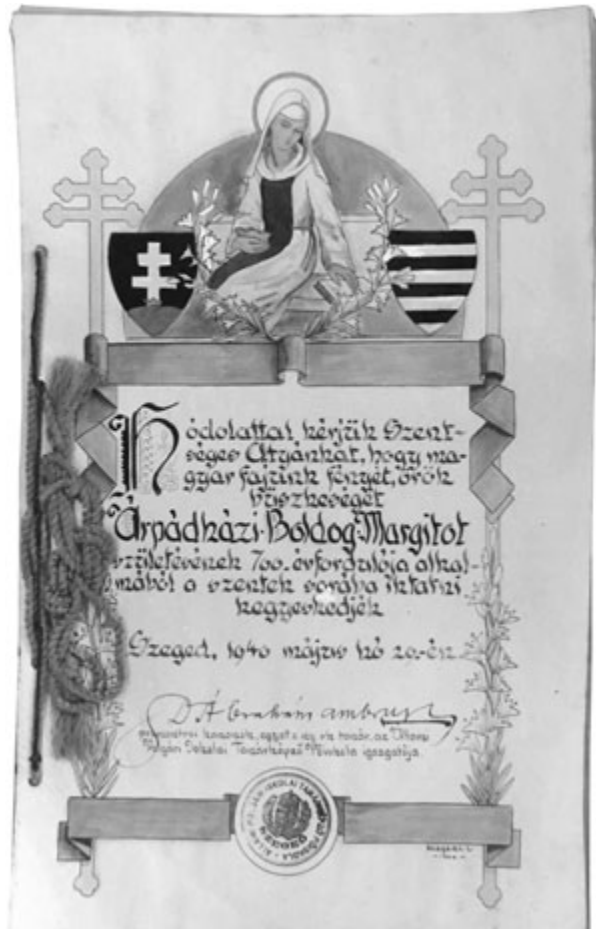 Hódolattal kérjük Szent-
séges Atyánkat, hogy ma-
gyar fajunk fényét, örök
büszkeségét
Árpádházi Boldog Margitot
születésének 700. évfordulója alkal-
mából a szentek sorába iktatni
kegyeskedjék
Szeged, 1940 május hó 20.-én
D Ábrahám Ambrus
az Állami
Polgári Iskolai Tanárképző Főiskola igazgatója
ÁLLAMI POLGÁRI ISKOLAI TANÁRKÉPZŐ FŐISKOLA
SZEGED